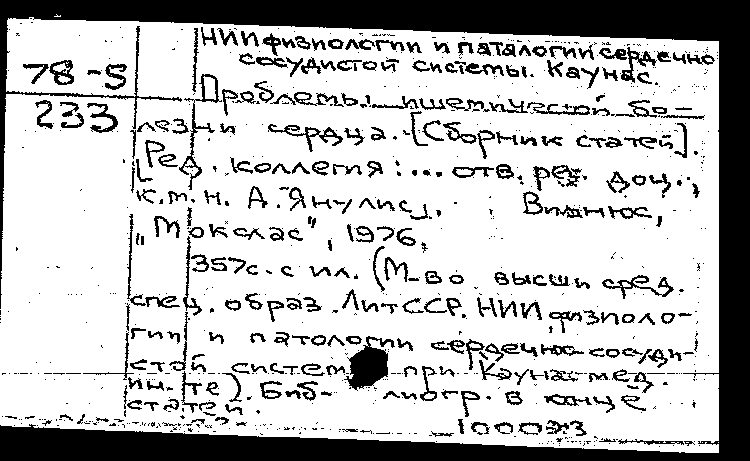 НИИ физиологии и паталогии сердечно
сосудистой системы. Каунас.
78-5
233
Проблемы ишемической бо-
лезни сердца. [Сборник статей].
[Ред. коллегия: ... отв. ред. доц.,
к.м.н. А. Янулис]. Вильнюс,
"Мокслас", 1976,
357с. с ил. (М-во высш и сред.
спец. образ. ЛитССР. НИИ физиоло-
гии и патологии сердечно-сосуди-
стой систем при Каунас мед.
ин-те). Биб- лиогр. в конце
статей.